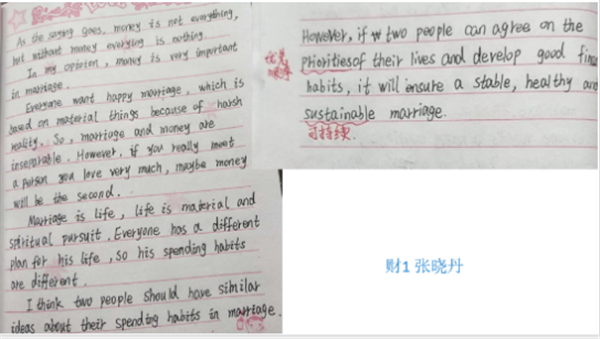 As the saying goes, money is not everything,
but without money everying is nothing.
In my opinion, money is very important
in marriage.
Everyone want happy marriage, which is
based on material things because of harsh
reality. So, marriage and money are
inseparable. However, if you really meet
a person you love very much, maybe money
will be the second.
Marriage is life, life is material and
spiritual pursuit. Everyone has a different
plan for his life, so his spending habits
are different.
I think two people should have similar
ideas about their spending habits in marriage.
However, if two people can agree on the
priorities of their lives and develop good
habits, it will ensure a stable, healthy and
sustainable marriage.
可持续
财1 张晓丹